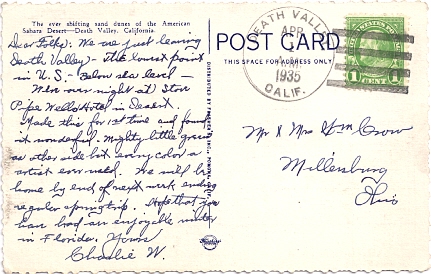 The ever shifting sand dunes of the American
Sahara Desert—Death Valley, California.
Dear Folks: We are just leaving
Death Valley - The lowest point
in U.S. - Below sea level -
Were over night at Stove
Pipe Wells Hotel in Desert.
Made this for 1st time and found
it wonderful. Mighty little green
as other side but every color a
artist ever used. We will be
home by end of next week ending
regular spring trip. Hope that you
have had an enjoyable winter
in Florida. Yours
Charlie W.
POST CARD
THIS SPACE FOR ADDRESS ONLY
DEATH VALLEY
APR
1935
CALIF.
1 CENT 1
Mr & Mrs Wm Crow
Millersburg
Ohio